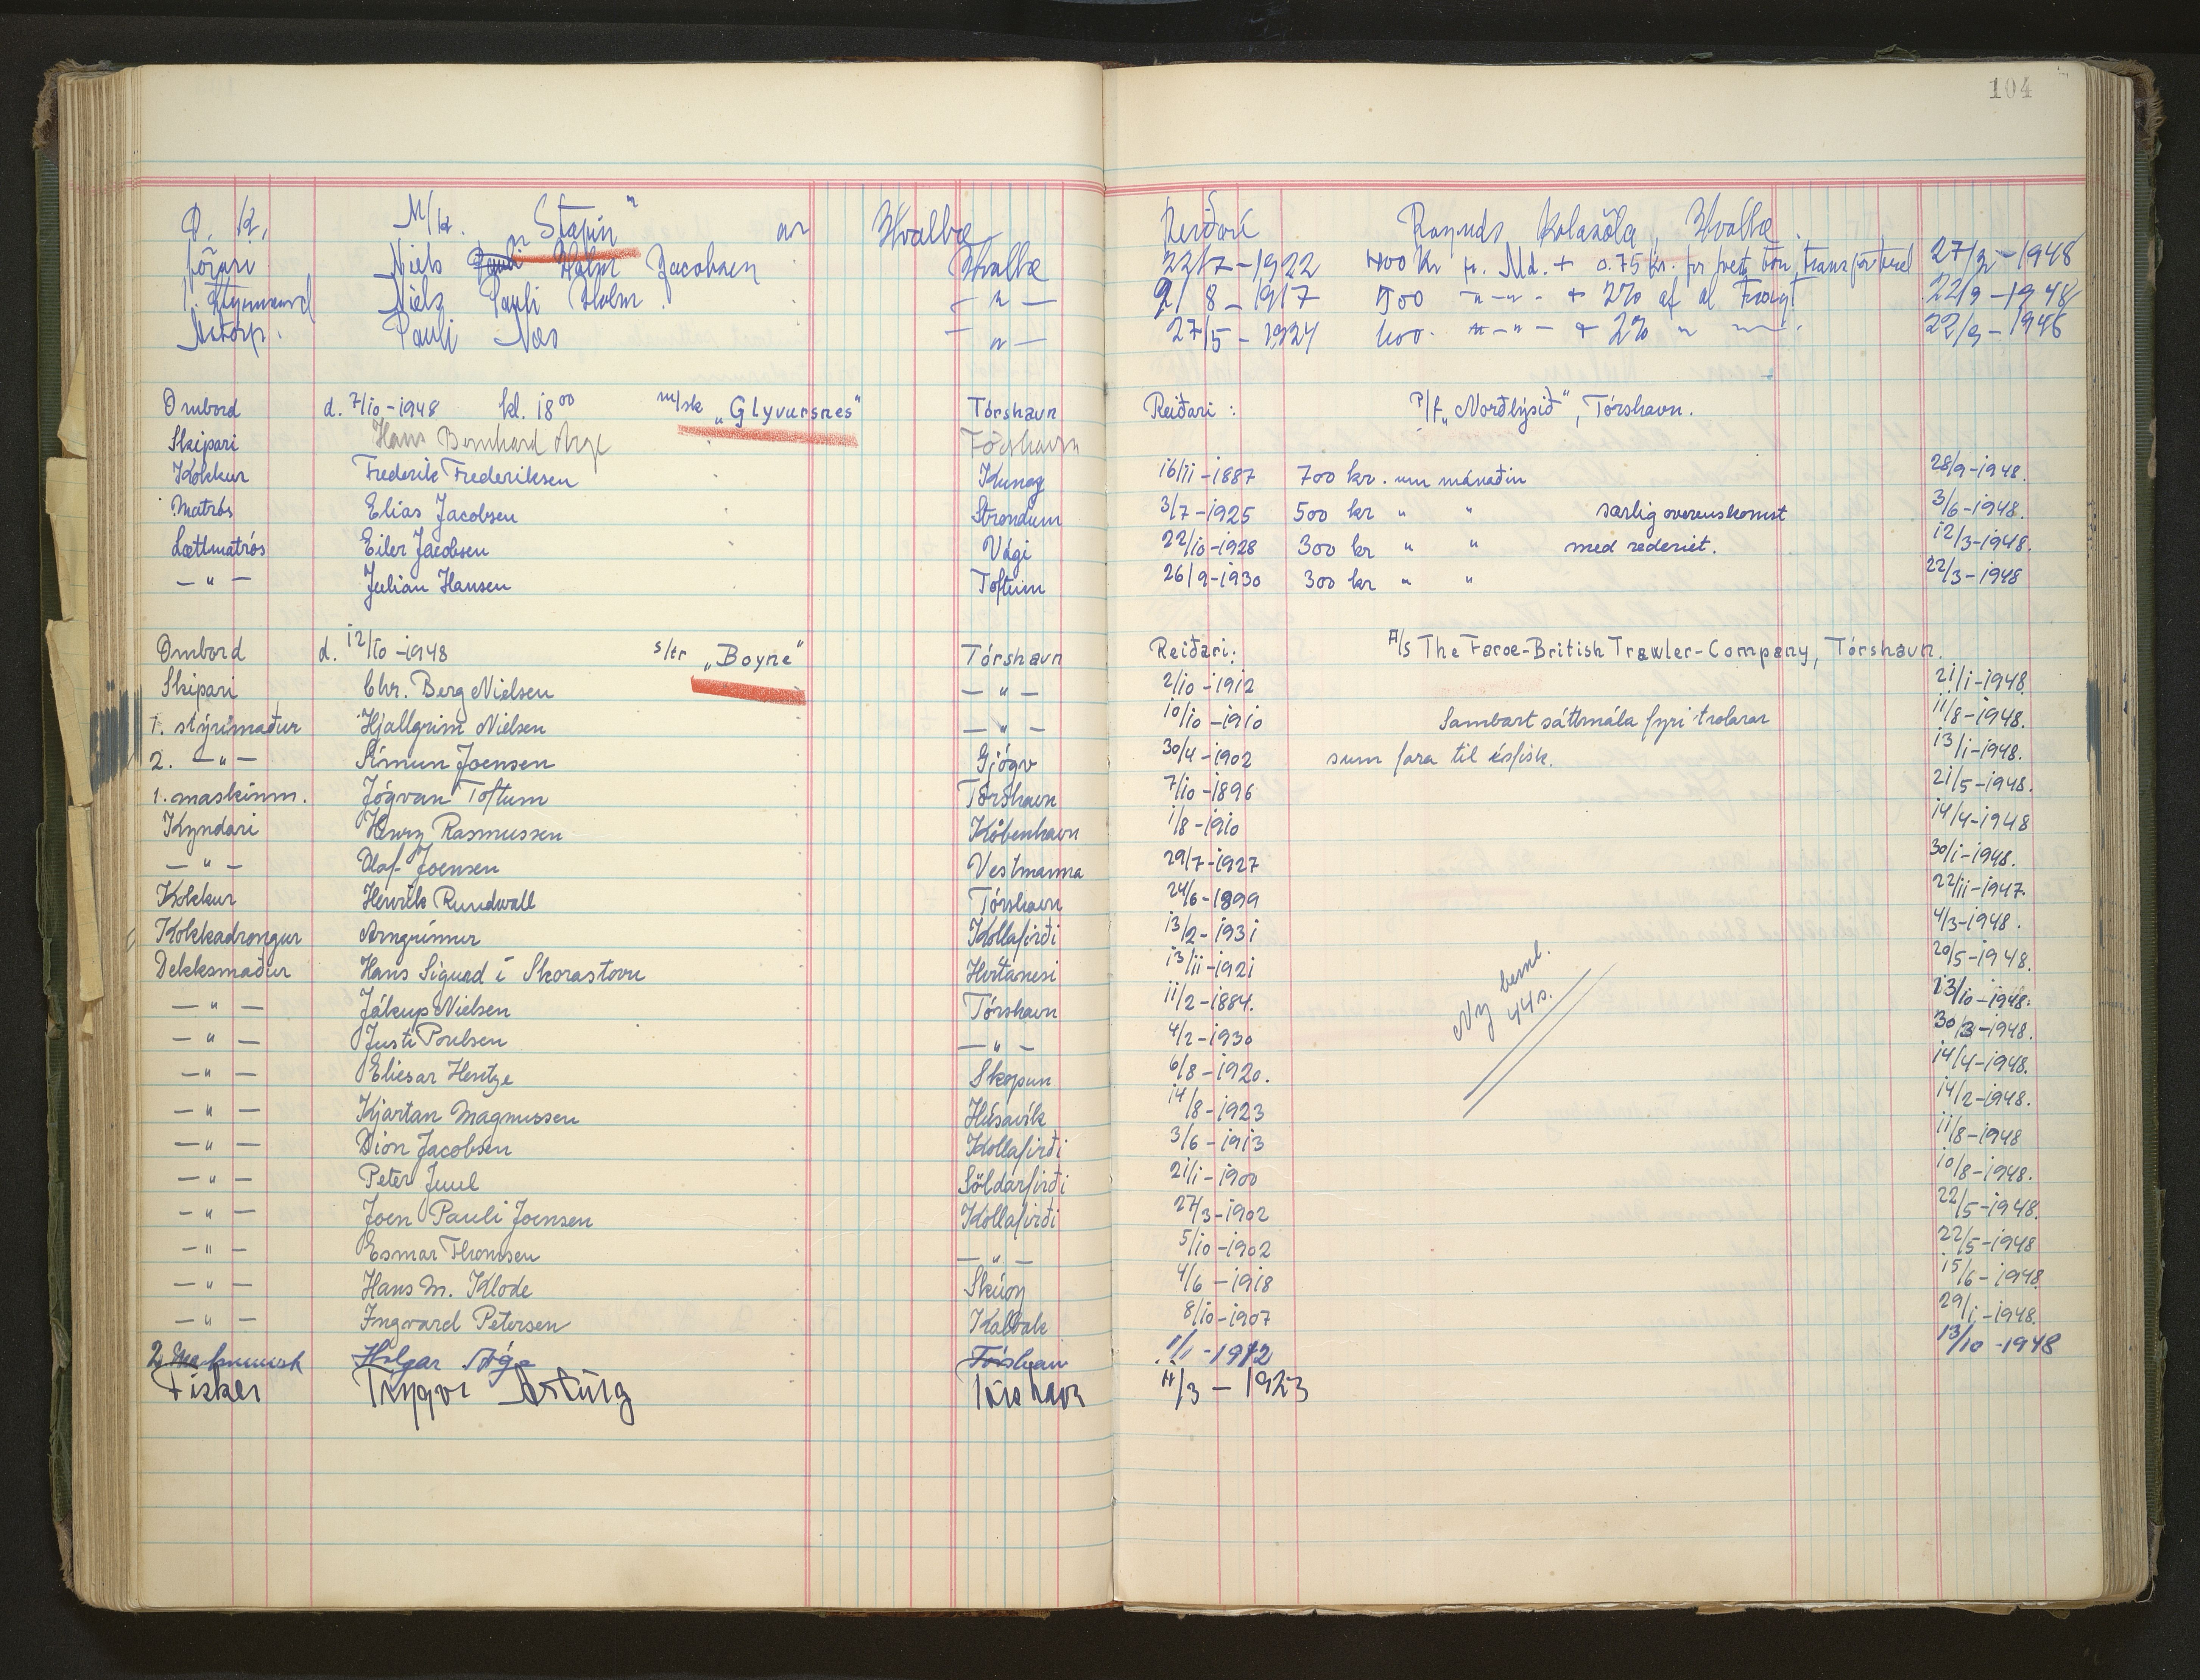 104
M/k. "Stapin" av Hvalba Reiðarí Hvalba
førari Niels Holm Jacobsen Hvalba 22/7-1922 400 Kr pr. Md. + 0.75 kr. pr 1948
1. Styrmand Niels Pauli Holm — " — 2/8-1917 500 — " — + 2% af 22/9-1948
Pauli Næs — " — 27/5-1924 400. — " — + 2% " 22/9-1948
Ombord d. 7/10-1948 kl. 18 00 m/sk „Glyvursnes" Tórshavn Reiðari: P/f „Norðlýsið", Tórshavn.
Skipari Hans Bernhard Arge Tórshavn
Kokkur Frederik Frederiksen Kunoy 16/11-1887 700 kr. um mánaðin 28/9-1948.
Matrós Elias Jacobsen Strondum 3/7-1925 500 kr " " særlig overenskomst 3/6-1948.
Lættmatrós Eiler Jacobsen Vági 22/10-1928 300 kr " " med rederiet. 12/3-1948.
— " — Julian Hansen Toftum 26/9-1930 300 kr " " 22/3-1948
Ombord d. 12/10-1948 s/tr „Boyne" Tórshavn Reiðari: A/s The Faroe-British Trawler-Company, Tórshavn.
Skipari Chr. Berg Nielsen — " — 2/10-1912 21/1-1948
1. stýrimaður Hjallgrim Nielsen — " — 10/10-1910 Sambart sáttmála fyri trolarar 11/8-1948.
2. — " — Símun Joensen Gjógv 30/4-1902 sum fara til ísfisk. 13/1-1948.
1. maskinm. Jógvan Toftum Tórshavn 7/10-1896 21/5-1948.
Kyndari Henry Rasmussen København 1/8-1910 14/4-1948
— " — Olaf Joensen Vestmanna 29/7-1927 30/1-1948.
Kokkur Henrik Rundwall Tórshavn 24/6-1899 22/11-1947.
Kokkadrongur Arngrímur Kollafirði 13/2-1931 4/3-1948.
Dekksmaður Hans Sigurd í Skorastovu Hvítanesi 13/11-1921 20/5-1948.
— " — Jákup Nielsen Tórshavn 11/2-1884. 13/10-1948.
— " — Justi Poulsen — " — 4/2-1930 Ny beml. 44 s. 30/3-1948.
— " — Eliesar Hentze Skopun 6/8-1920. 14/4-1948.
— " — Kjartan Magnussen Húsavík 14/8-1923 14/2-1948.
— " — Dion Jacobsen Kollafirði 3/6-1913 11/8-1948
— " — Peter Juul Söldarfirði 21/1-1900 10/8-1948.
— " — Joen Pauli Joensen Kollafirði 27/3-1902 22/5-1948.
— " — Esmar Thomsen — " — 5/10-1902 22/5-1948
— " — Hans M. Klode Skúoy 4/6-1918 15/6-1948
— " — Ingvard Petersen Kaldbak 8/10-1907 29/1-1948.
2 Hilgar Tórshavn 1/1-1912 13/10-1948
Fisker Tryggvi Tórshavn 11/3-1923